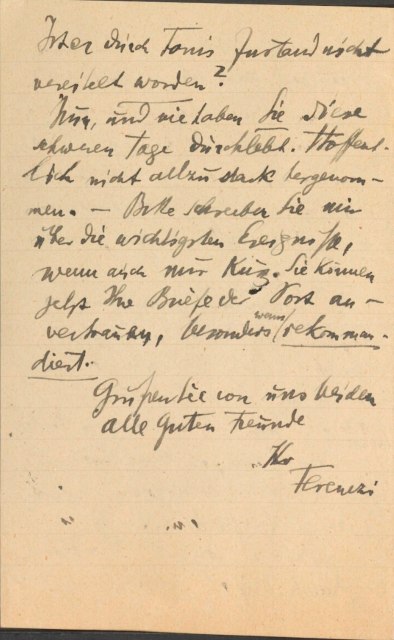 Ist er durch Tonis Zustand nicht
vereitelt worden?
Nun, und wie haben Sie diese
schweren Tage durchlebt. Hoffent-
lich nicht allzu stark hergenom-
men. – Bitte schreiben Sie mir
über die wichtigsten Ereignisse,
wenn auch nur kurz. Sie können
jetzt Ihre Briefe der Post an-
vertrauen, besonders wenn rekomman-
diert.
Grüßen Sie von uns beiden
alle guten Freunde
Ihr
Ferenczi